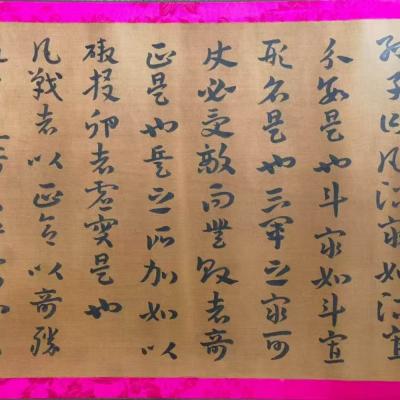 孫子曰凡治眾如治寡
分數是也斗眾如斗寡
形名是也三軍之眾可
使必受敵而無敗者奇
正是也兵之所加如以
碫投卵者虛實是也
凡戰者以正合以奇勝